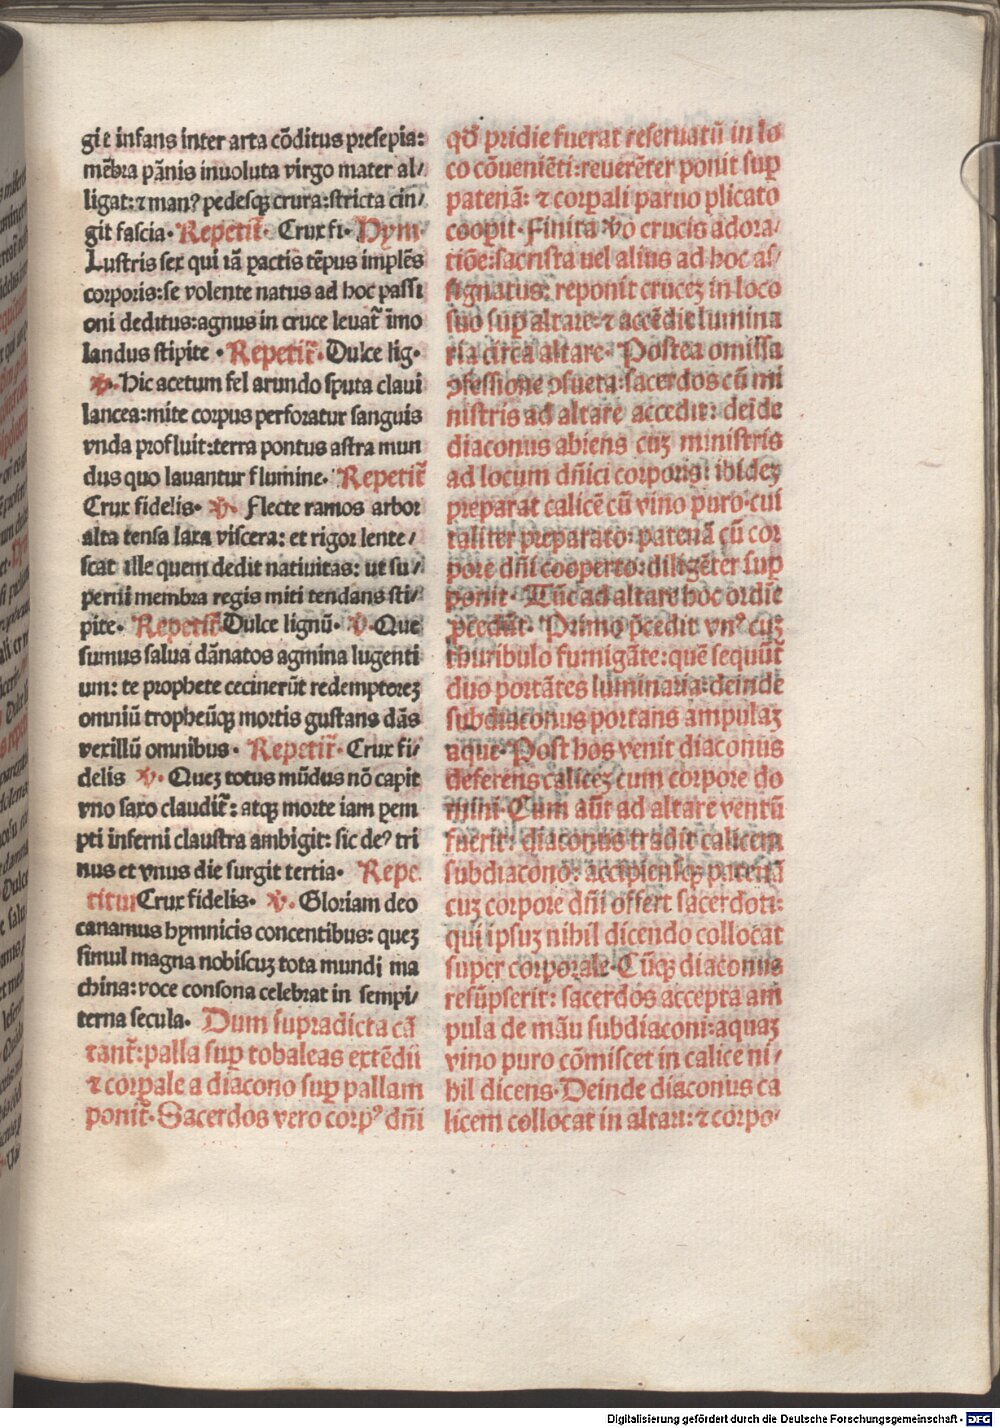 gie infans inter arta cōditus presepia:
mēbra pānis inuoluta virgo mater al/
ligat: ⁊ man⁹ pedesqꝫ crura: stricta cin/
git fascia. Repetit̄. Crux fi. Hym.
Lustris sex qui iā ꝑactis tēpus implēs
corporis: se volente natus ad hoc passi
oni deditus: agnus in cruce leuat̄ īmo
landus stipite. Repetit̄. Dulce lig.
℣. Hic acetum fel arundo sputa claui
lancea: mite corpus perforatur sanguis
vnda profluit: terra pontus astra mun
dus quo lauantur flumine. Repetit̄
Crux fidelis. ℣. Flecte ramos arbor
alta tensa laxa viscera: et rigor lente/
scat ille quem dedit natiuitas: ut su/
perni membra regis miti tendans sti/
pite. Repetit̄. Dulce lignū. ℣. Que
sumus salua dānatos agmina lugenti
um: te prophete cecinerūt redemptoreꝫ
omniū tropheūqꝫ mortis gustans dās
vexillū omnibus. Repetit̄. Crux fi/
delis ℣. Queꝫ totus mūdus nō capit
vno saxo claudit̄: atqꝫ morte iam ꝑem
pti inferni claustra ambigit: sic de⁹ tri
nus et vnus die surgit tertia. Repe.
titur Crux fidelis. ℣. Gloriam deo
canamus hymnicis concentibus: queꝫ
simul magna nobiscuꝫ tota mundi ma
china: voce consona celebrat in sempi/
terna secula. Dum supradicta cā
tant̄: palla suꝑ tobaleas extēdit̄
⁊ corꝑale a diacono suꝑ pallam
ponit̄. Sacerdos vero corp⁹ dñi
qd̄ pridie fuerat reseruatū in lo
co cōueniēti: reuerēter ponit suꝑ
patenā: ⁊ corꝑali paruo plicato
cooꝑit. Finita v̄o crucis adora/
tiōe: sacrista uel alius ad hoc as/
signatus: reponit cruceꝫ in loco
suo suꝑ altare: ⁊ accēdit lumina
ria circa altare. Postea omissa
ꝯfessione ꝯsueta: sacerdos cū mi
nistris ad altare accedit: deīde
diaconus abiens cuꝫ ministris
ad locum dñici corporis: ibideꝫ
preparat calicē cū vino puro. cui
taliter preparato: patenā cū cor
pore dñi cooperto: diligēter suꝑ
ponit. Tūc ad altare hoc ordīe
ꝓcedūt. Primo p̄cedit vn⁹ cuꝫ
thuribulo fumigāte: quē sequūt̄
duo portātes luminaria: deinde
subdiaconus portans ampulaꝫ
aque. Post hos venit diaconus
deferens caliceꝫ cum corpore do
mini. Cum aūt ad altare ventū
fuerit: diaconus tradit calicem
subdiacono: accipiensqꝫ patenā
cuꝫ corpore dñi offert sacerdoti:
qui ipsuꝫ nihil dicendo collocat
super corporale. Cūqꝫ diaconus
resūpserit: sacerdos accepta am
pula de māu subdiaconi: aquaꝫ
vino puro cōmiscet in calice ni/
hil dicens. Deinde diaconus ca
licem collocat in altari: ⁊ corpo/
Digitalisierung gefördert durch die Deutsche Forschungsgemeinschaft - DFG